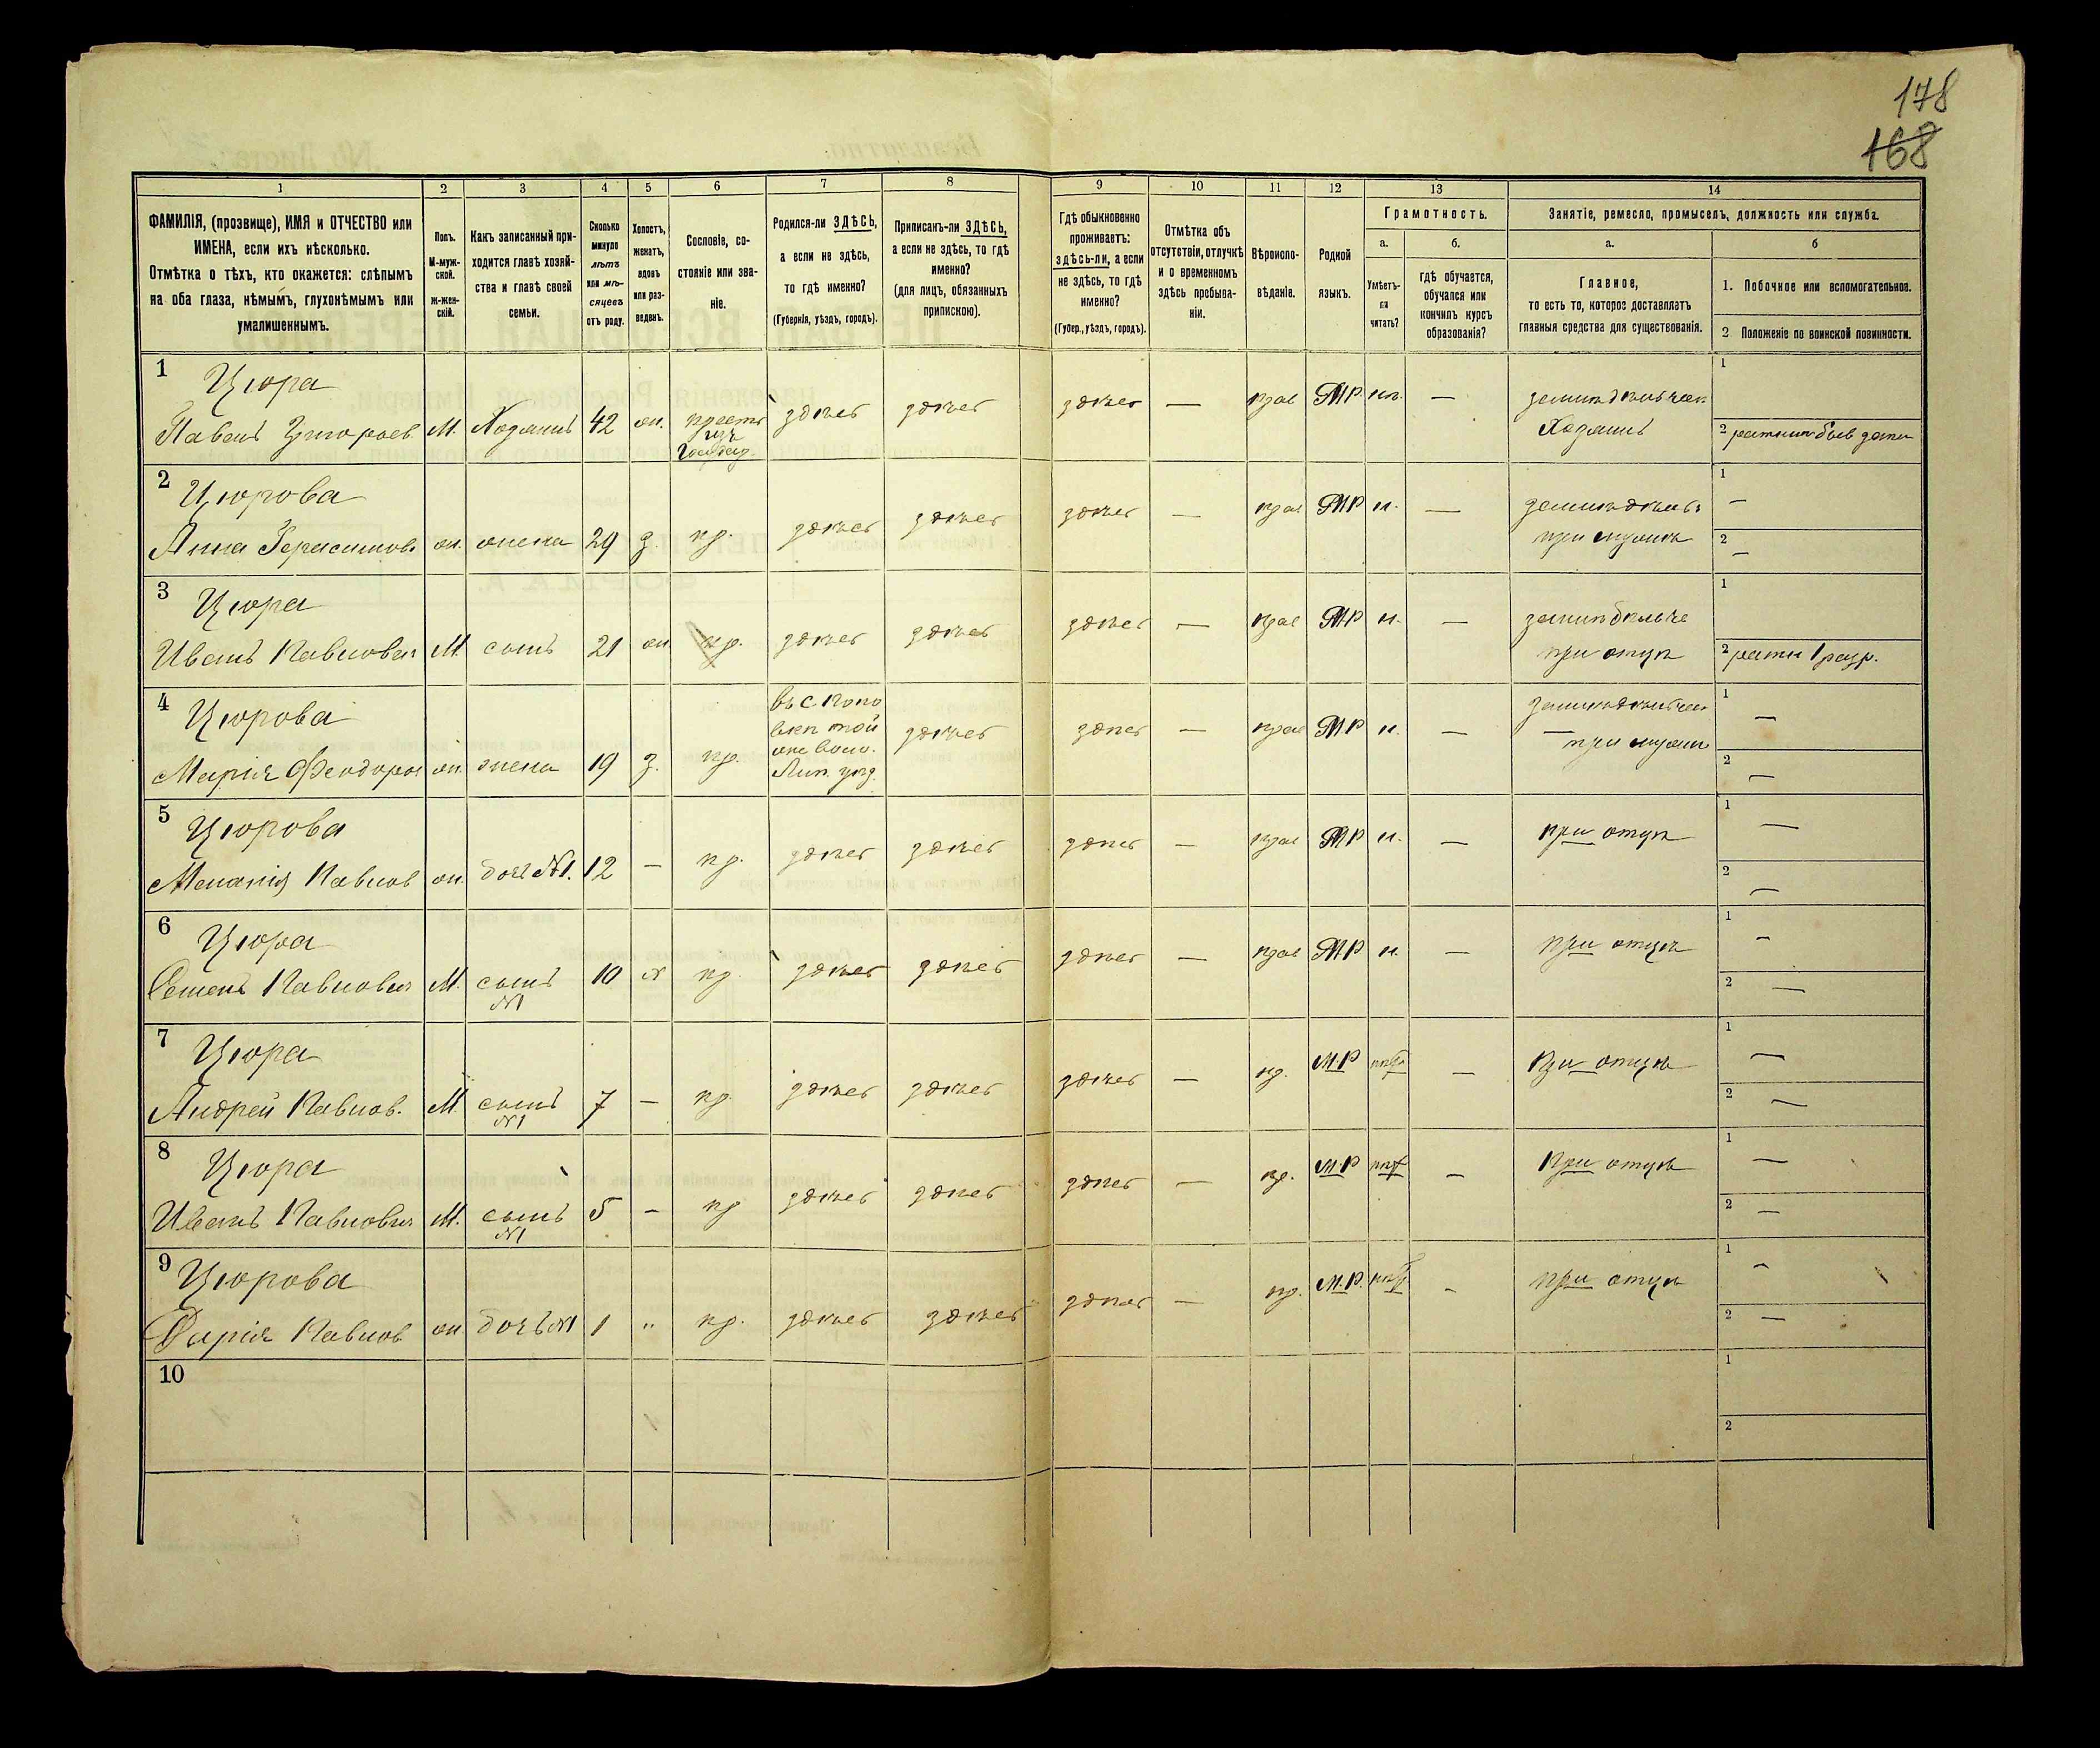 178
168
1
2
3
4
5
6
7
8
9
10
11
12
13
14
ФАМИЛІЯ, (прозвище), ИМЯ и ОТЧЕСТВО или
ИМЕНА, если ихъ нѣсколько.
Отмѣтка о тѣхъ, кто окажется: слѣпымъ
на оба глаза, нѣмымъ, глухонѣмымъ или
умалишеннымъ.
Полъ.
М-муж-
ской.
ж-жен-
скій.
Какъ записанный при-
ходится главѣ хозяй-
ства и главѣ своей
семьи.
Сколько
минуло
лѣтъ
или мѣ-
сяцевъ
отъ роду.
Холостъ,
женатъ,
вдовъ
или раз-
веденъ.
Сословіе, со-
стояніе или зва-
ніе.
Родился-ли ЗДѢСЬ,
а если не здѣсь,
то гдѣ именно?
(Губернія, уѣздъ, городъ).
Приписанъ-ли ЗДѢСЬ,
а если не здѣсь, то гдѣ
именно?
(для лицъ, обязанныхъ
припискою).
Гдѣ обыкновенно
проживаетъ:
здѣсь-ли, а если
не здѣсь, то гдѣ
именно?
(Губер., уѣздъ, городъ).
Отмѣтка объ
отсутствіи, отлучкѣ
и о временномъ
здѣсь пребыва-
ніи.
Вѣроиспо-
вѣданіе.
Родной
языкъ.
Грамотность.
а.
Умѣетъ-
ли
читать?
б.
гдѣ обучается,
обучался или
кончилъ курсъ
образованія?
Занятіе, ремесло, промыселъ, должность или служба.
а.
Главное,
то есть то, которое доставляетъ
главныя средства для существованія.
б
1. Побочное или вспомогательное.
2 Положеніе по воинской повинности.
1
Цюра
Павелъ Григорьев М. Хозяинъ 42 ж. крест. изъ здѣсь здѣсь здѣсь — прав М.Р. — Хозяинъ
1
2
2
Цюрова
Анна Герасимов ж. жена 29 з. кр. здѣсь здѣсь здѣсь — прав МР н. — при мужѣ
1 —
2 —
3
Цюра
Иванъ Павлович М. сынъ 21 ж кр. здѣсь здѣсь здѣсь — прав МР н. — при отцѣ
1
2 ратн 1 разр.
4
Цюрова
въ с. Попо
вкѣ той
же воло.
Марія Феодоров ж. жена 19 з. кр. здѣсь здѣсь — прав МР н. — при мужѣ
1 —
2 —
5
Цюрова
Меланія Павлов ж. доч №1. 12 — кр. здѣсь здѣсь здѣсь — прав МР н. — при отцѣ
1 —
2 —
6
Цюра
Семенъ Павлович М. сынъ №1 10 х кр. здѣсь здѣсь здѣсь — прав МР н. — при отцѣ
1 —
2 —
7
Цюра
Андрей Павлов. М. сынъ №1 7 — кр. здѣсь здѣсь здѣсь — пр. МР — при отцѣ
1 —
2 —
8
Цюра
Иванъ Павлович М. сынъ №1 5 — кр здѣсь здѣсь здѣсь — пр. М.Р — При отцѣ
1 —
2 —
9
Цюрова
Дарія Павлов ж. дочь №1 1 " кр. здѣсь здѣсь здѣсь — пр. М.Р. - при отцѣ
1 —
2 —
10
1
2